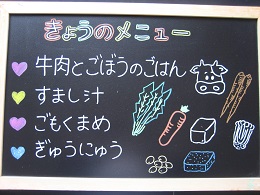 きょうのメニュー
牛肉とごぼうのごはん
すまし汁
ごもくまめ
ぎゅうにゅう